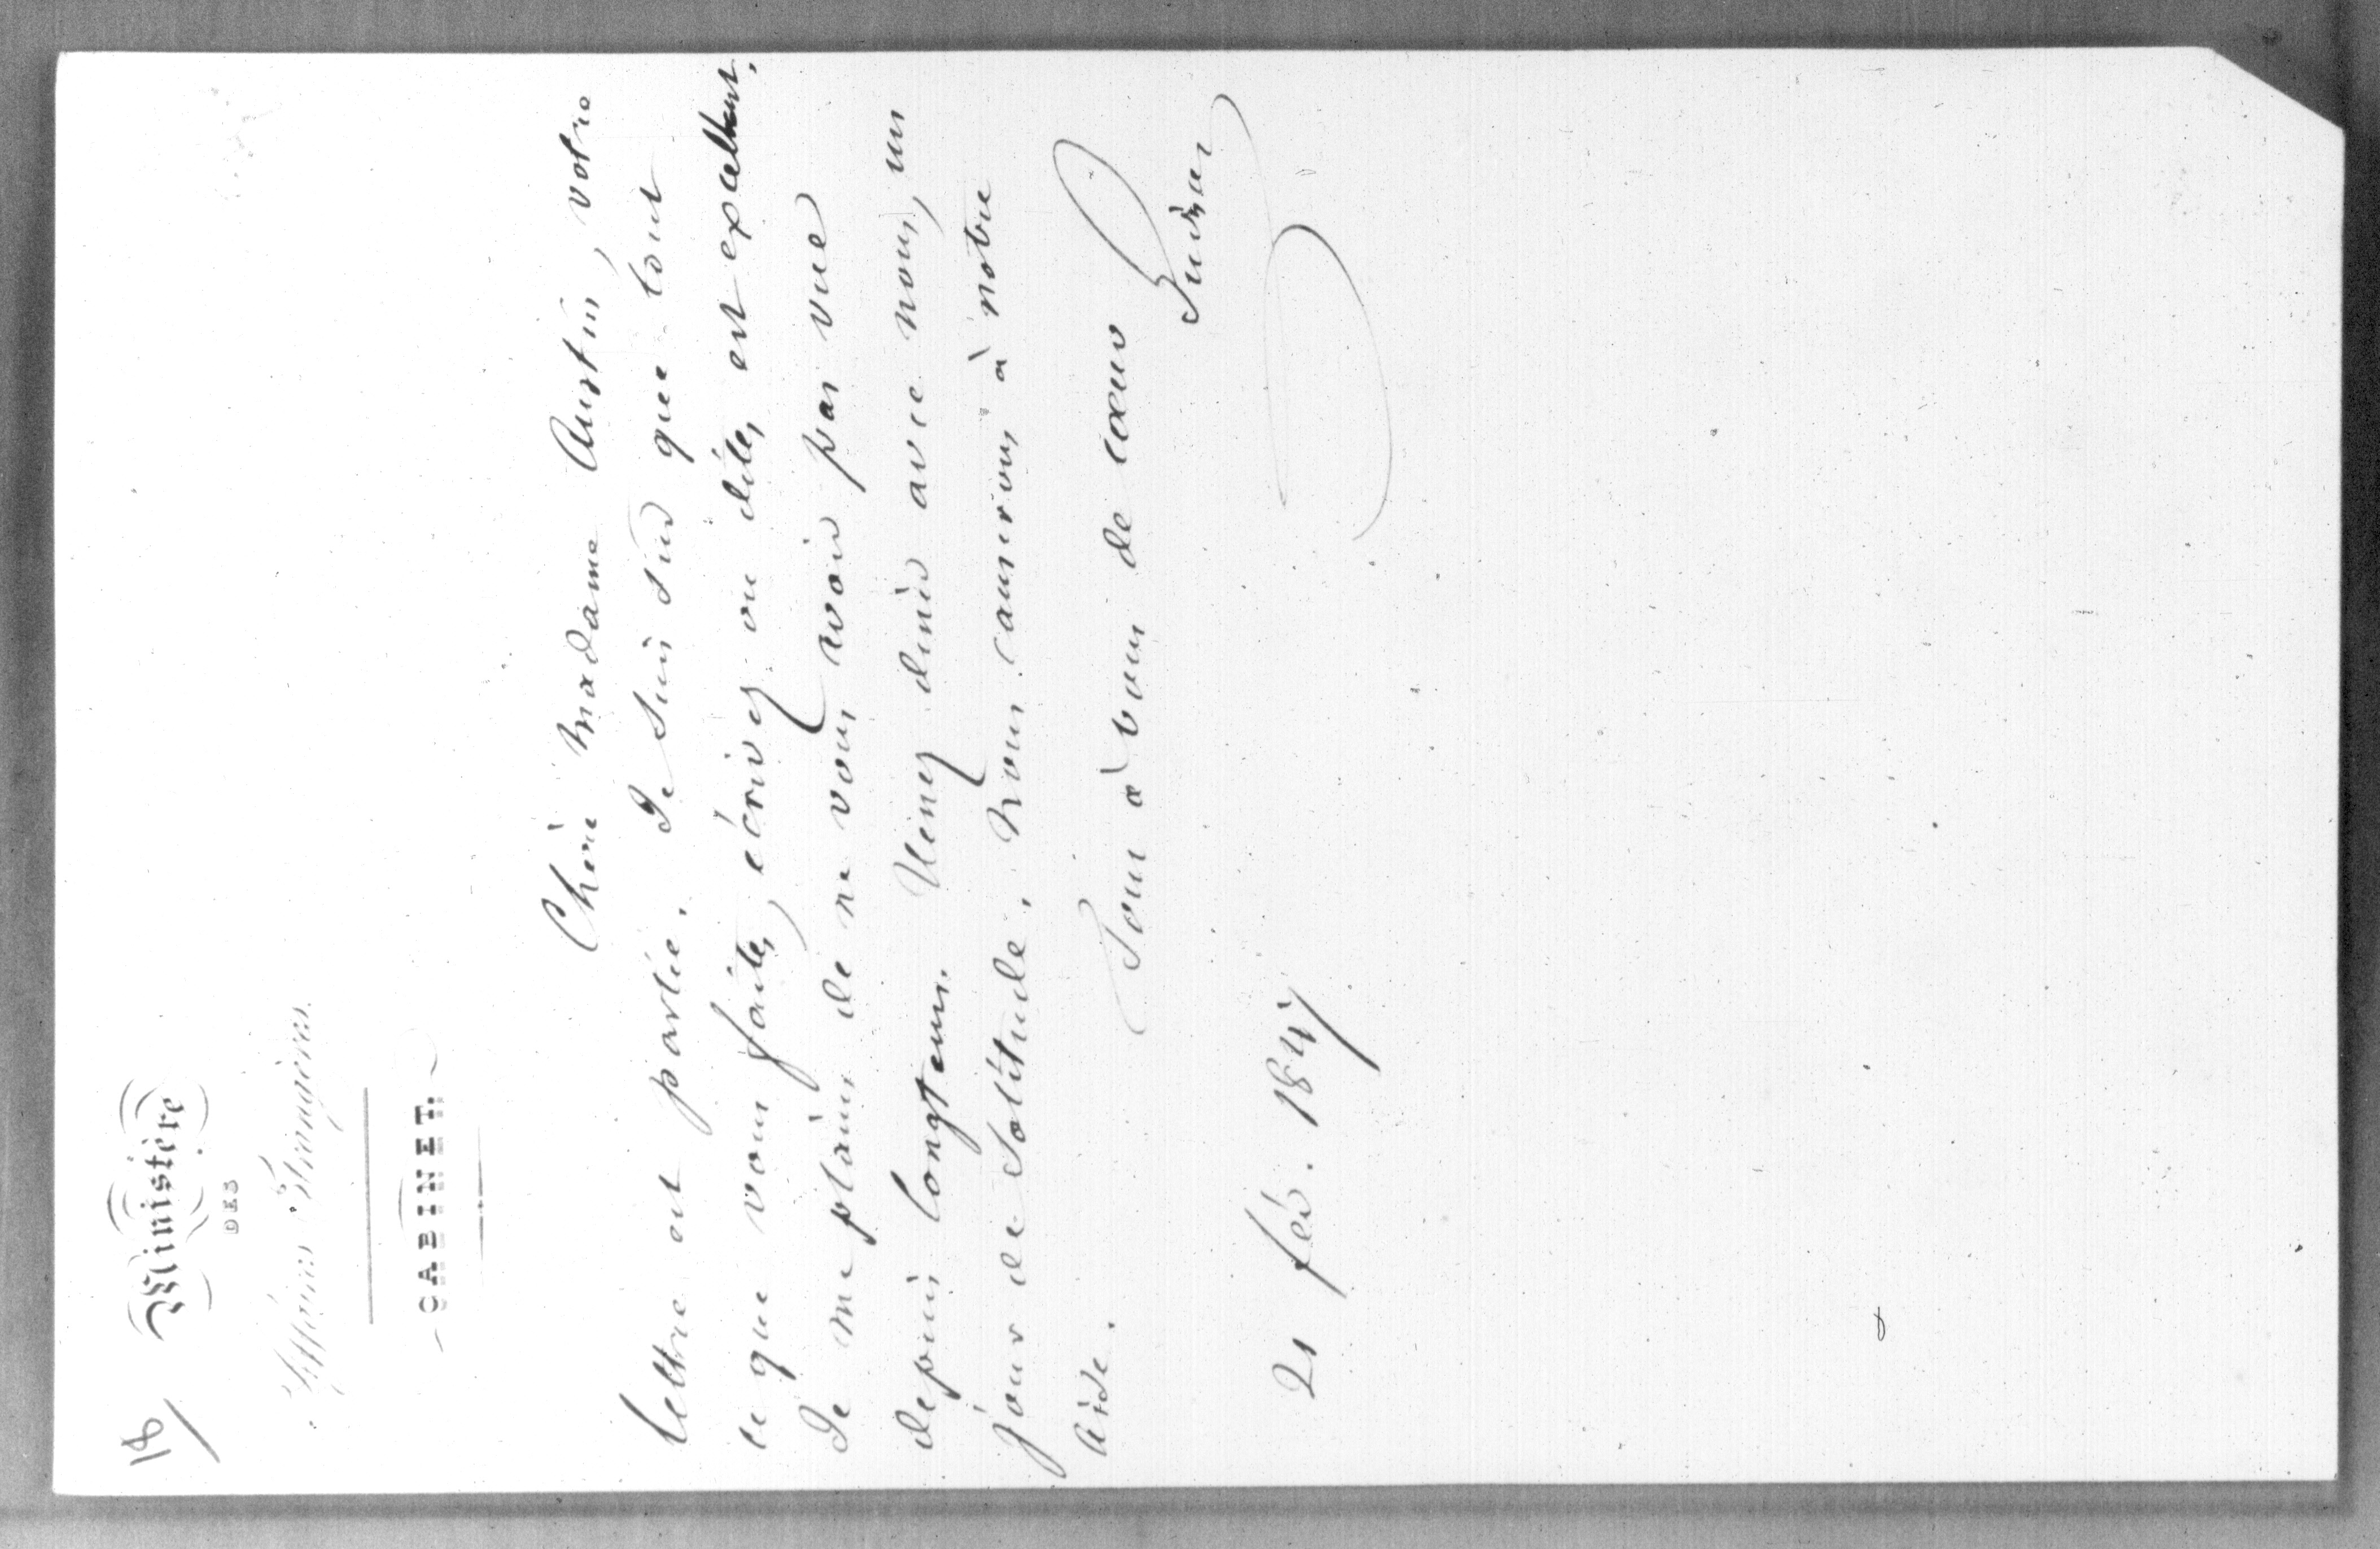 18/
Ministère
DES
Affaires Etrangères.
CABINET.
Chère Madame Austin, votre
lettre est partie. Je suis sur que tout
ce que vous faites, écrivez ou dites, est excellent.
Je me plains de ne vous avoir pas vue
depuis longtems. Venez diner avec nous, un
jour de solitude. Nous causerons à notre
aise.
Tout à vous de coeur
Guizot
21 fév. 1847